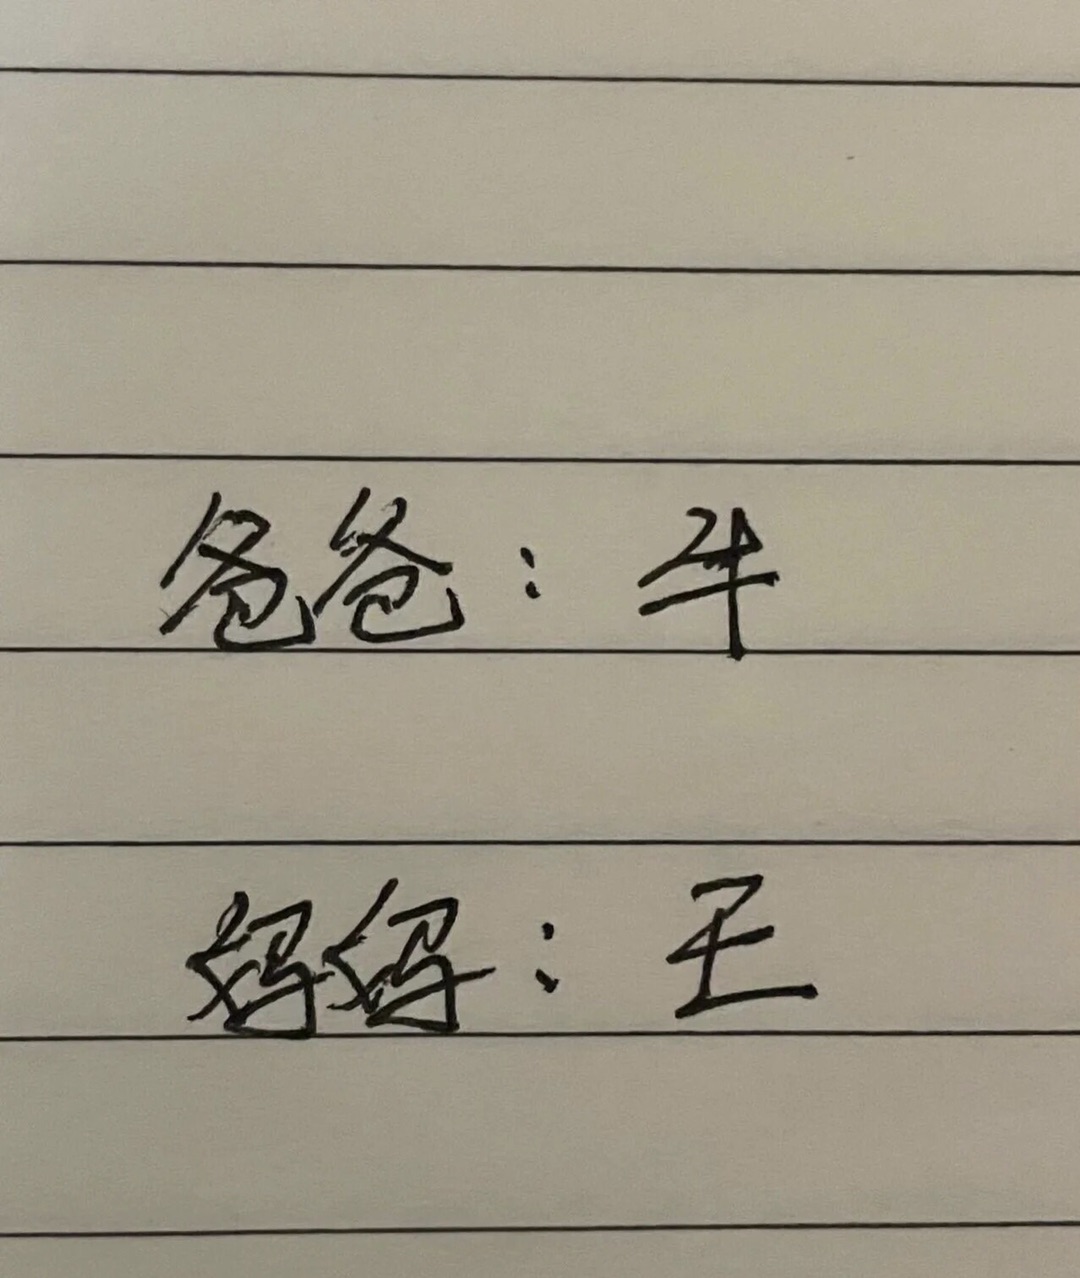 爸爸：牛
妈妈：王